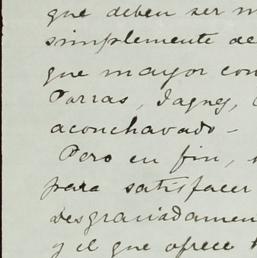 que deben ser m
simplemente de
que mayor con
Parras, Jagney,
aconchavado -
Pero en fin,
para satisfacer
desgraciadamen
y el que ofrece